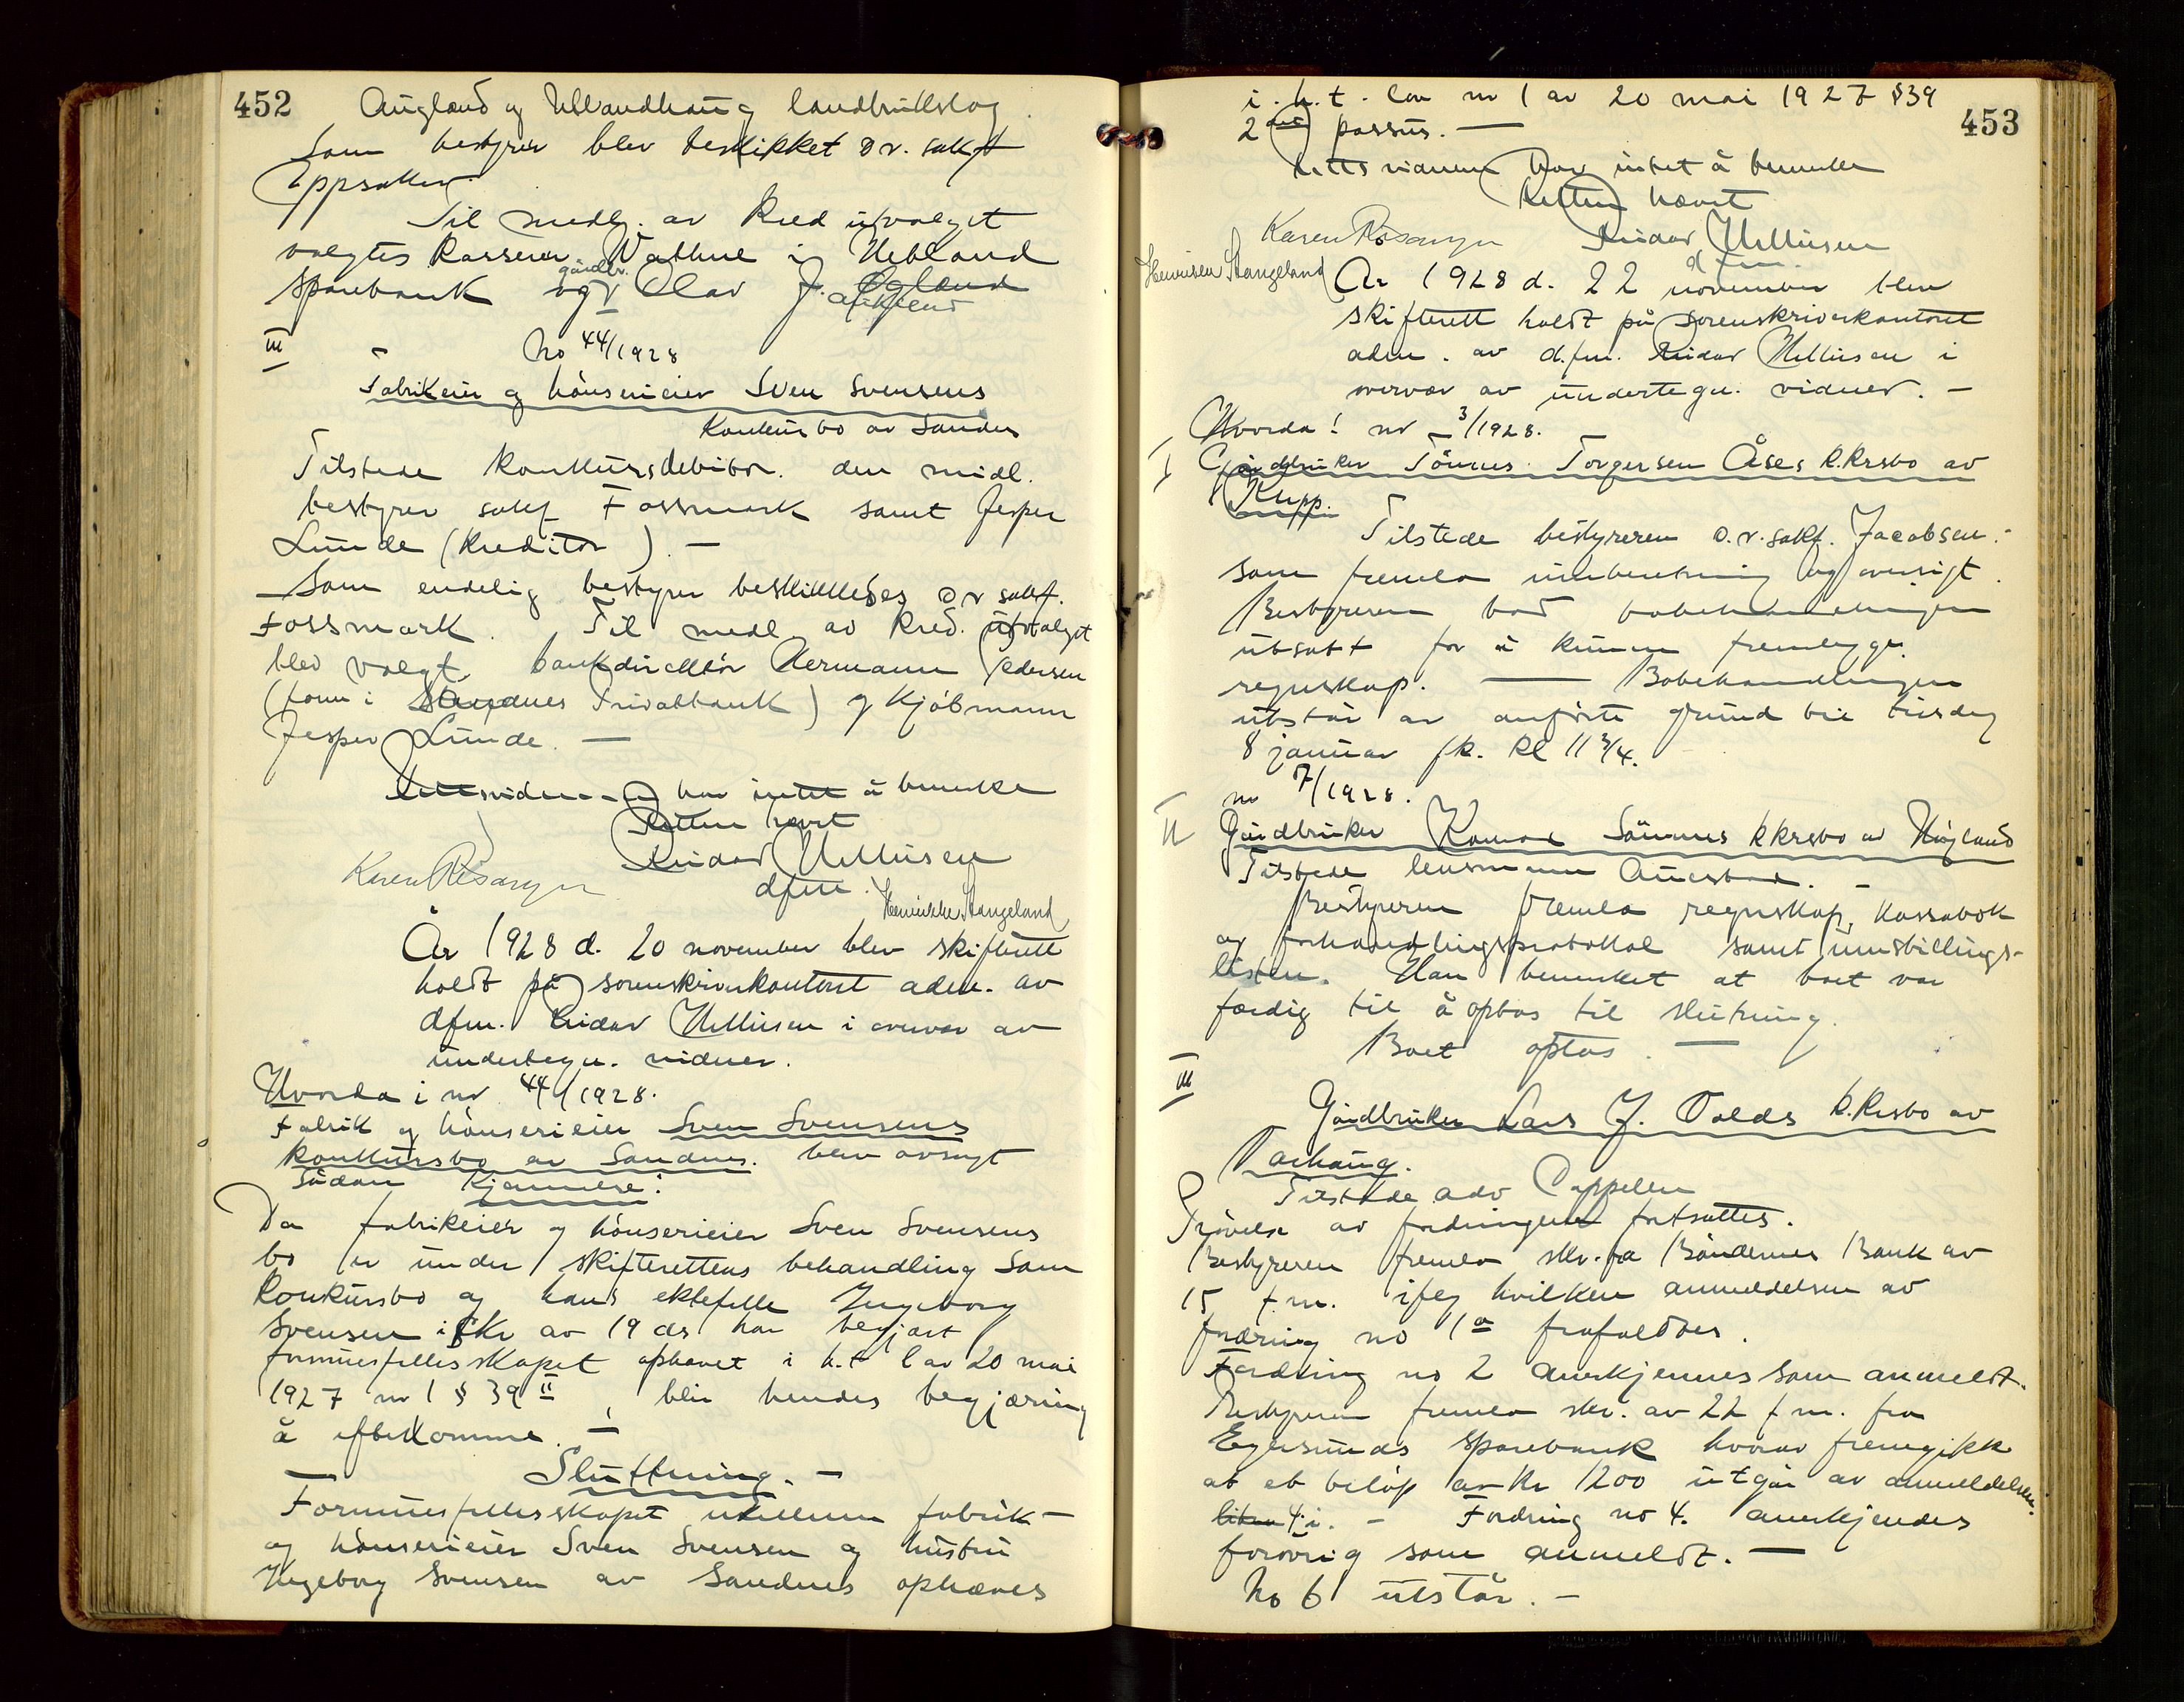 452
Augland og Ullandhaug landbrukslag.
Som bestyrer blev beskikket o.r. sakf.
Eppsalter.
Til medl. av kred utvalget
valgtes kasserer Vathne i Hetland
Sparebank og gårdbr. Olav J. Øgland
III
No 44/1928
Fabrikeier og hönserieier Sven Svensens
Konkursbo av Sandnes
Tilstede konkursdebitor. den midl.
bestyrer sakf Fossmark samt Jesper
Lunde (kreditor). —
Som endelig bestyrer beskikkedes o r sakf.
Fossmark. Til medl av kred. utvalget
blev valgt bankdirektör Hermann Pedersen
(form i Sandnes Privatbank) og Kjöbmann
Jesper Lunde. —
Rettsvidnene har intet å bemerke
Retten hævet
Reidar Mellusen
dfm.
Karen Rosavgen
Henrikke Stangeland
År 1928 d. 20 november blev skifterett
holdt på sorenskriverkontoret adm. av
dfm. Reidar Mellusen i overvær av
undertegn. vidner.
Hvorda i nr 44/1928.
Fabrik og hönserieier Sven Svensens
konkursbo av Sandnes. blev avsagt
sådan Kjennelse:
Da fabrikeier og hönserieier Sven Svensens
bo er under skifterettens behandling som
konkursbo og hans ektefelle Ingeborg
Svensen i skr av 19 ds har begjært
formuesfellesskapet ophævet i h.t l av 20 mai
1927 nr 1 § 39 II, blir hendes begjæring
å efterkomme. —
— Sluttning. —
Formuesfellesskapet mellem fabrik-
og hönserieier Sven Svensen og hustru
Ingeborg Svensen av Sandnes ophæves
453
i. h. t. lov nr 1 av 20 mai 1927 § 39
2det passus. —
Rettsvidnene har intet å bemerke
Retten hævet
Karen Rosavgen Reidar Mellusen
dfm.
Henriken Stangeland
År 1928 d. 22 november blev
skifterett holdt på sorenskriverkontoret
adm. av d.fm. Reidar Mellusen i
overvær av undertegn. vidner. —
Hvorda! nr 3/1928.
I Gårdbruker Tönnes Torgersen Åses k.krsbo av
Klepp.
Tilstede bestyreren o.r.sakf. Jacobsen.
som fremla innberetning og oversigt.
Bestyreren bad bobehandlingen
utsatt for å kunne fremlegge
regnskap. — Bobehandlingen
utstår av anförte grund til tirsdag
8 januar fk. kl 11 3/4.
nr 7/1928.
II Gårdbruker Konrad Sömmes kkrsbo av Högland
Tilstede lensmann Auestad. —
Bestyreren fremla regnskap, kassabok
og forhandlingsprotokol samt innstillings-
listen. Han bemerket at boet var
færdig til å optas til slutning.
Boet optas. —
III
Gårdbruker Lars J. Valds k.krsbo av
Varhaug.
Tilstede adv Cappelen
Prövelse av fordringene fortsattes.
Bestyreren fremla skr. fra Böndernes Bank av
15 f.m. iflg hvilken anmeldelsen av
fordring no 1a frafaldtes.
Fordring no 2 anerkjennes som anmeldt.
Bestyreren fremla skr. av 22 f m. fra
Egersunds Sparebank hvorav fremgikk
at et beløp av kr 1200 utgår av anmeldelsen.
4. i. — Fordring no 4. anerkjendes
forövrig som anmeldt. —
No 6 utstår. —